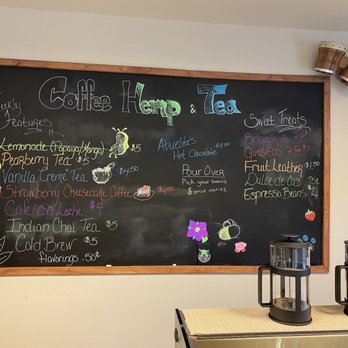 Coffee Hemp & Tea
Weekly
Features
Lemonade (Papaya/Mango) $5
Pearberry Tea $5
Vanilla Crème Tea $4.50
Strawberry Cheesecake Coffee $4.50
Cafe con Leche $4
Indian Chai Tea $5
Cold Brew $5
Flavorings .50¢
Abuelita's
Hot Chocolate $4.50
Pour Over
Pick your beans
$ price varies
Sweet Treats
Fruit Leather $1.50
Dulce de
Espresso Beans